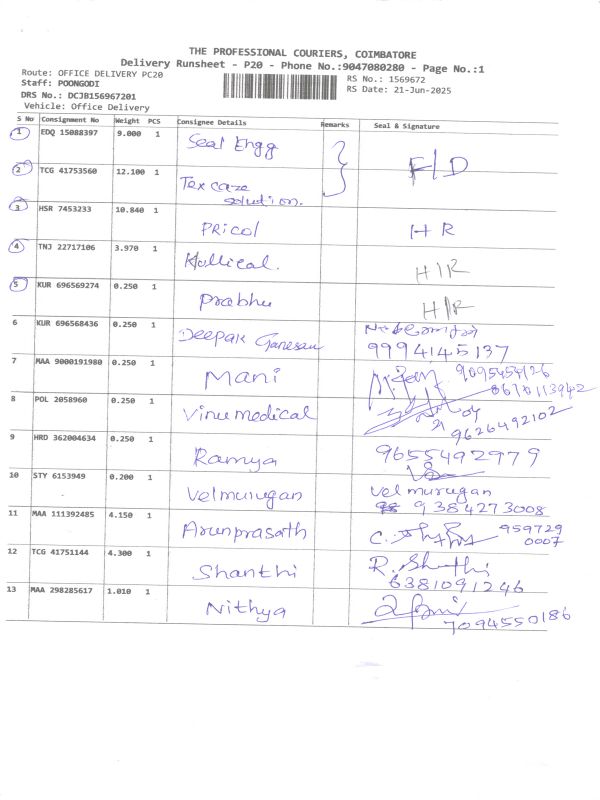 THE PROFESSIONAL COURIERS, COIMBATORE
Delivery Runsheet - P20 - Phone No.:9047080280 - Page No.:1
Route: OFFICE DELIVERY PC20
Staff: POONGODI
DRS No.: DCJB156967201
Vehicle: Office Delivery
RS No.: 1569672
RS Date: 21-Jun-2025
S No Consignment No Weight PCS Consignee Details Remarks Seal & Signature
1 EDQ 15088397 9.000 1 Seal Engg F/D
2 TCG 41753560 12.100 1 Tex caze
solution.
3 HSR 7453233 10.840 1 PRicol H R
4 TNJ 22717106 3.970 1 Hollical. H/R
5 KUR 696569274 0.250 1 Prabhu H/R
6 KUR 696568436 0.250 1 Deepak Ganesan
9994145137
7 MAA 9000191980 0.250 1 Mani
8 POL 2058960 0.250 1 Vinu medical
9626492102
9 HRD 362004634 0.250 1 Ramya 9655492979
10 STY 6153949 0.200 1 Velmurugan Vel murugan
9384273008
11 MAA 111392485 4.150 1 Arunprasath 959729
0007
12 TCG 41751144 4.300 1 Shanthi R. Shanthi
6381091246
13 MAA 298285617 1.010 1 Nithya
7094550186